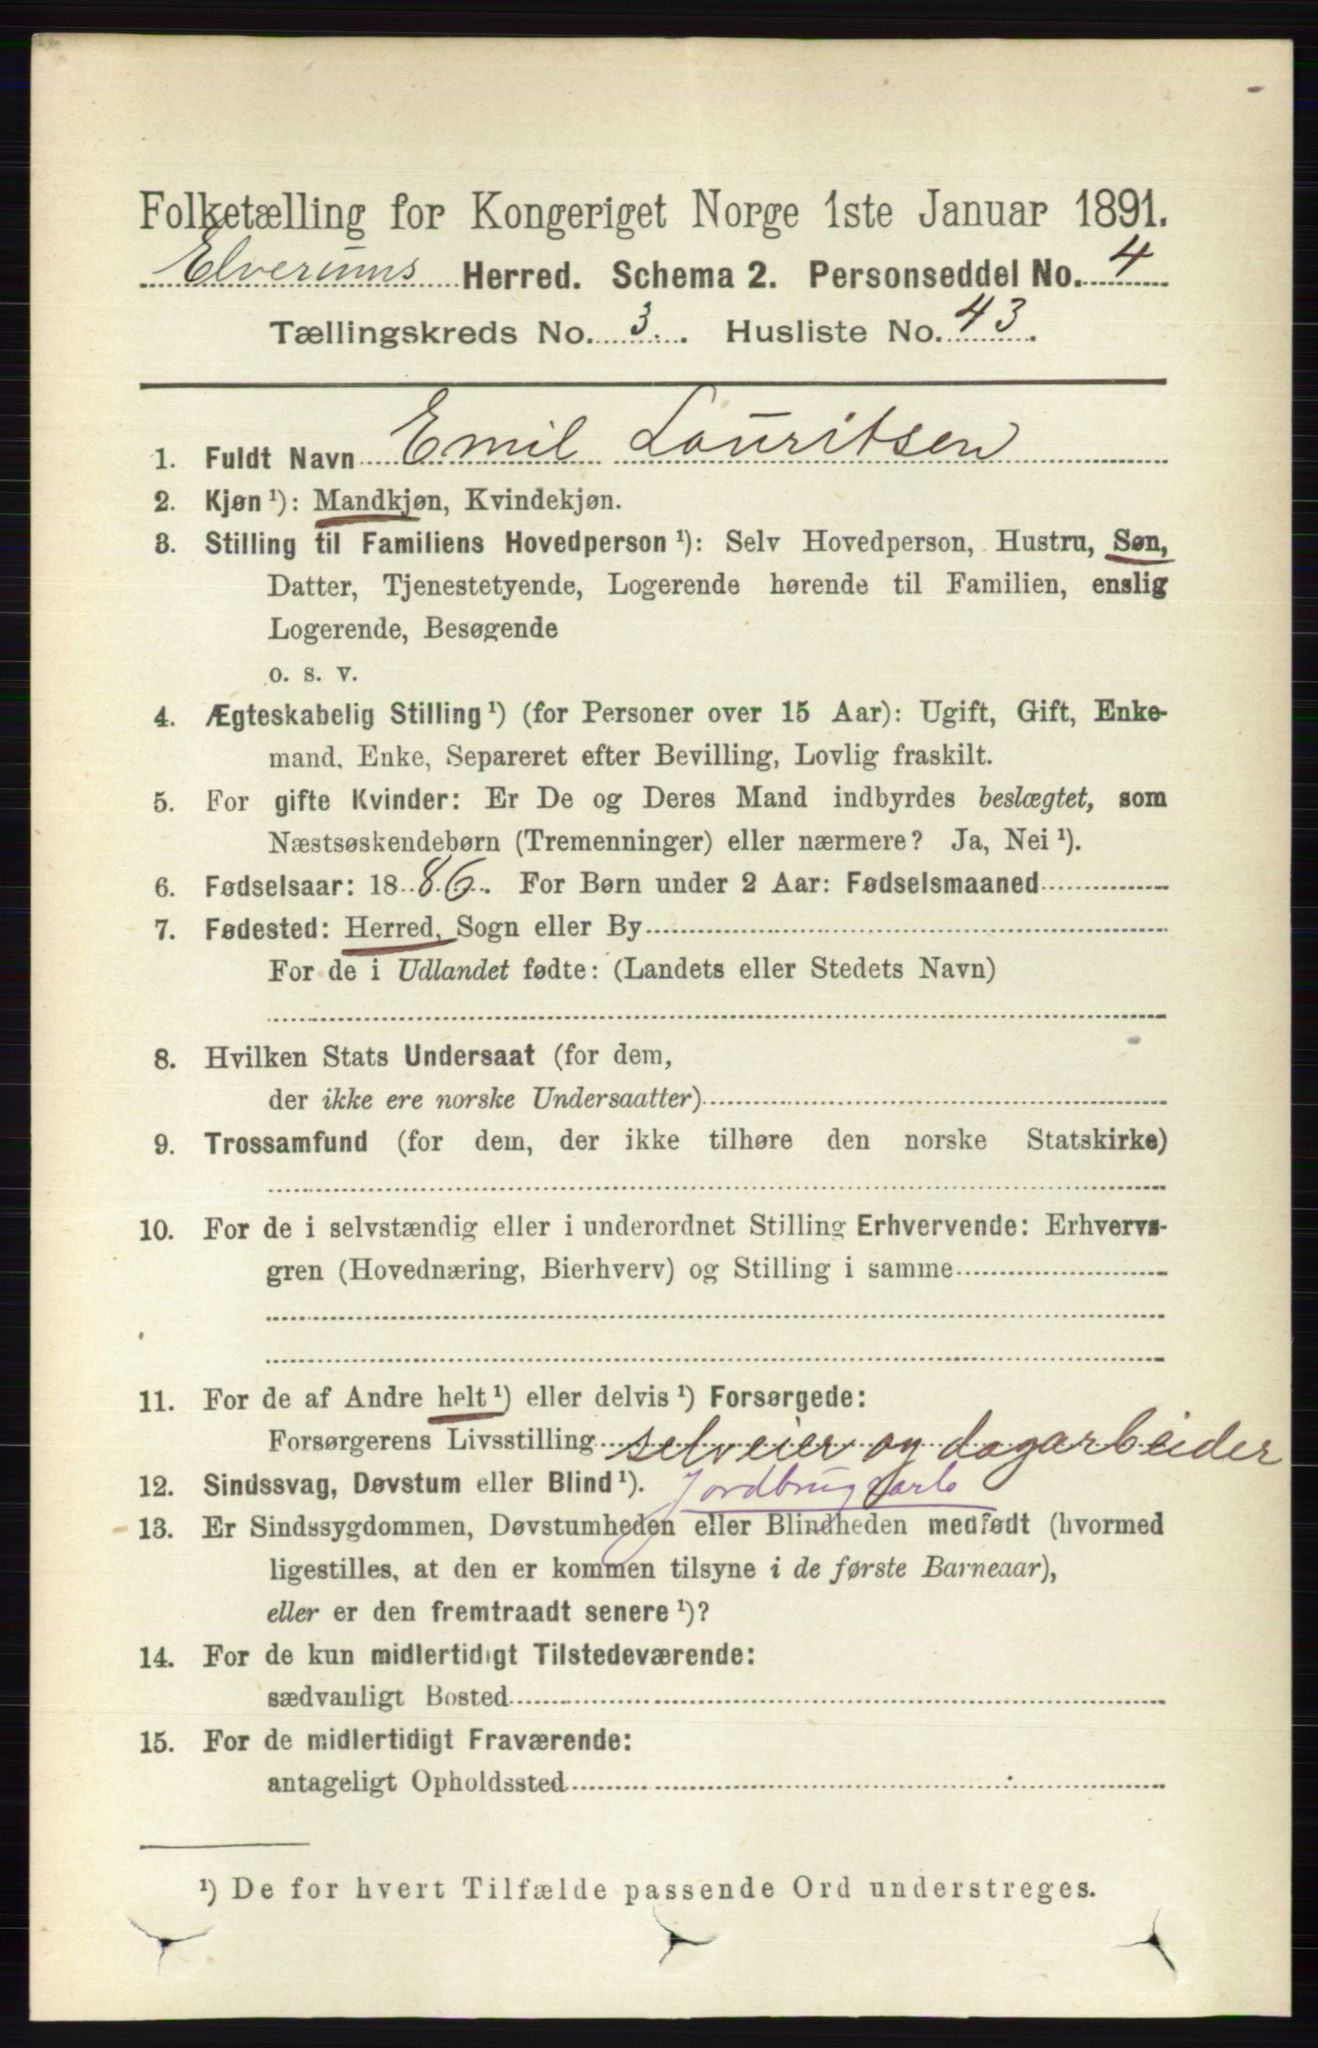 Folketælling for Kongeriget Norge 1ste Januar 1891.
Elverums Herred. Schema 2. Personseddel No. 4
Tællingskreds No. 3. Husliste No. 43.
1. Fuldt Navn Emil Lauritsen
2. Kjøn ¹): Mandkjøn, Kvindekjøn.
3. Stilling til Familiens Hovedperson ¹): Selv Hovedperson, Hustru, Søn,
Datter, Tjenestetyende, Logerende hørende til Familien, enslig
Logerende, Besøgende
o. s. v.
4. Ægteskabelig Stilling ¹) (for Personer over 15 Aar): Ugift, Gift, Enke-
mand, Enke, Separeret efter Bevilling, Lovlig fraskilt.
5. For gifte Kvinder: Er De og Deres Mand indbyrdes beslægtet, som
Næstsøskendebørn (Tremenninger) eller nærmere? Ja, Nei ¹).
6. Fødselsaar: 1886. For Børn under 2 Aar: Fødselsmaaned
7. Fødested: Herred, Sogn eller By
For de i Udlandet fødte: (Landets eller Stedets Navn)
8. Hvilken Stats Undersaat (for dem,
der ikke ere norske Undersaatter)
9. Trossamfund (for dem, der ikke tilhøre den norske Statskirke)
10. For de i selvstændig eller i underordnet Stilling Erhvervende: Erhvervs-
gren (Hovednæring, Bierhverv) og Stilling i samme
11. For de af Andre helt ¹) eller delvis ¹) Forsørgede:
Forsørgerens Livsstilling selveier og dagarbeider
12. Sindssvag, Døvstum eller Blind ¹). Jordbrugsarb
13. Er Sindssygdommen, Døvstumheden eller Blindheden medfødt (hvormed
ligestilles, at den er kommen tilsyne i de første Barneaar),
eller er den fremtraadt senere ¹)?
14. For de kun midlertidigt Tilstedeværende:
sædvanligt Bosted
15. For de midlertidigt Fraværende:
antageligt Opholdssted
¹) De for hvert Tilfælde passende Ord understreges.